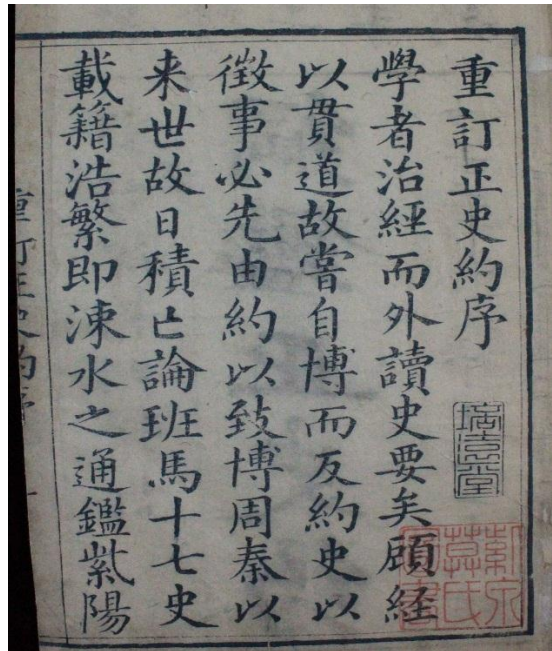 重訂正史約序
學者治經而外讀史要矣顧経
以貫道故嘗自博而反約史以
徴事必先由約以致博周秦以
来世故日積亡論班馬十七史
載籍浩繁即涑水之通鑑紫陽